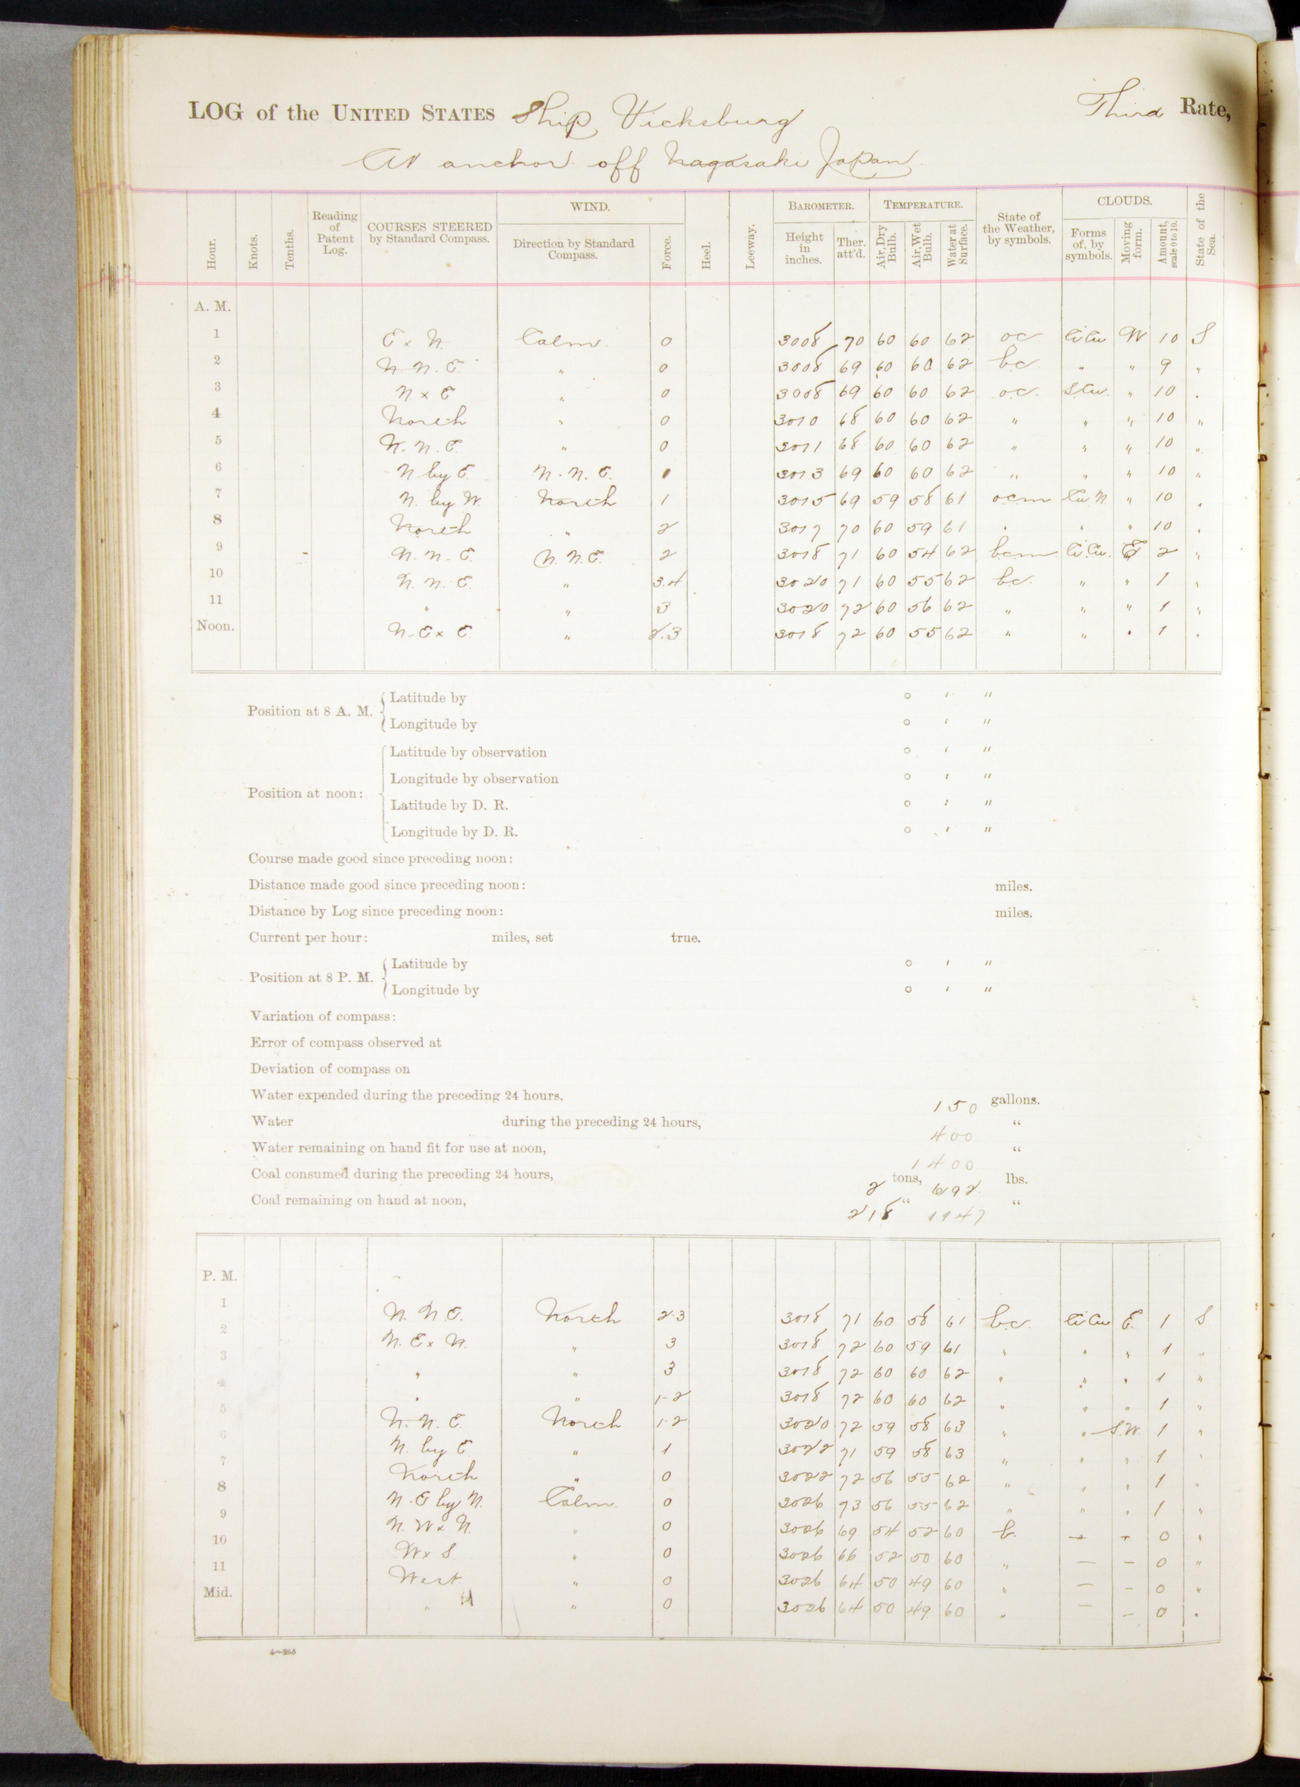 LOG of the UNITED STATES Ship Vicksburg Third Rate,
At anchor off Nagasaki Japan
Hour. Knots. Tenths. Reading of Patent Log. COURSES STEERED by Standard Compass. WIND. Direction by Standard Compass. Force. Heel. Leeway. BAROMETER. Height in inches. Ther. att'd. TEMPERATURE. Air, Dry Bulb. Air, Wet Bulb. Water at Surface. State of the Weather, by symbols. CLOUDS. Forms of, by symbols. Moving form. Amount, scale 0 to 10. State of the Sea.
A. M.
1 E x N. Calm 0 3008 70 60 60 62 oc. Ci Cu W 10 S
2 N. N. E. " 0 3008 69 60 60 62 bc. " " 9 "
3 N x E " 0 3008 69 60 60 62 o.c. S.Cu. " 10 "
4 North " 0 3010 68 60 60 62 " " " 10 "
5 N. N. E. " 0 3011 68 60 60 62 " " " 10 "
6 N by E. N. N. E. 1 3013 69 60 60 62 " " " 10 "
7 N. by W. North 1 3015 69 59 58 61 ocm Cu N " 10 "
8 North " 2 3017 70 60 59 61 " " " 10 "
9 N. N. E. N. N. E. 2 3018 71 60 54 62 bcm Ci. Cu. E 2 "
10 N. N. E. " 3.4 3020 71 60 55 62 bc. " " 1 "
11 " " 3 3020 72 60 56 62 " " " 1 "
Noon. N. E x E. " 2.3 3018 72 60 55 62 " " " 1 "
Position at 8 A. M. Latitude by ° ′ ″
Longitude by ° ′ ″
Position at noon: Latitude by observation ° ′ ″
Longitude by observation ° ′ ″
Latitude by D. R. ° ′ ″
Longitude by D. R. ° ′ ″
Course made good since preceding noon:
Distance made good since preceding noon: miles.
Distance by Log since preceding noon: miles.
Current per hour: miles, set true.
Position at 8 P. M. Latitude by ° ′ ″
Longitude by ° ′ ″
Variation of compass:
Error of compass observed at
Deviation of compass on
Water expended during the preceding 24 hours, 150 gallons.
Water during the preceding 24 hours, 400 "
Water remaining on hand fit for use at noon, 1400 "
Coal consumed during the preceding 24 hours, 2 tons, 692 lbs.
Coal remaining on hand at noon, 218 " 1147 "
P. M.
1 N. N. E. North 2-3 3018 71 60 58 61 b.c. Ci Cu E. 1 S
2 N. E x N. " 3 3018 72 60 59 61 " " " 1 "
3 " " 3 3018 72 60 60 62 " " " 1 "
4 " " 1-2 3018 72 60 60 62 " " " 1 "
5 N. N. E. North 1-2 3020 72 59 58 63 " " S.W. 1 "
6 N. by E " 1 3022 71 59 58 63 " " " 1 "
7 North " 0 3022 72 56 55 62 " " " 1 "
8 N. E by N. Calm 0 3026 73 56 55 62 " " " 1 "
9 N. W x N. " 0 3026 69 54 52 60 b. - - 0 "
10 W x S " 0 3026 66 52 50 60 " - - 0 "
11 West " 0 3026 64 50 49 60 " - - 0 "
Mid. " " 0 3026 64 50 49 60 " - - 0 "